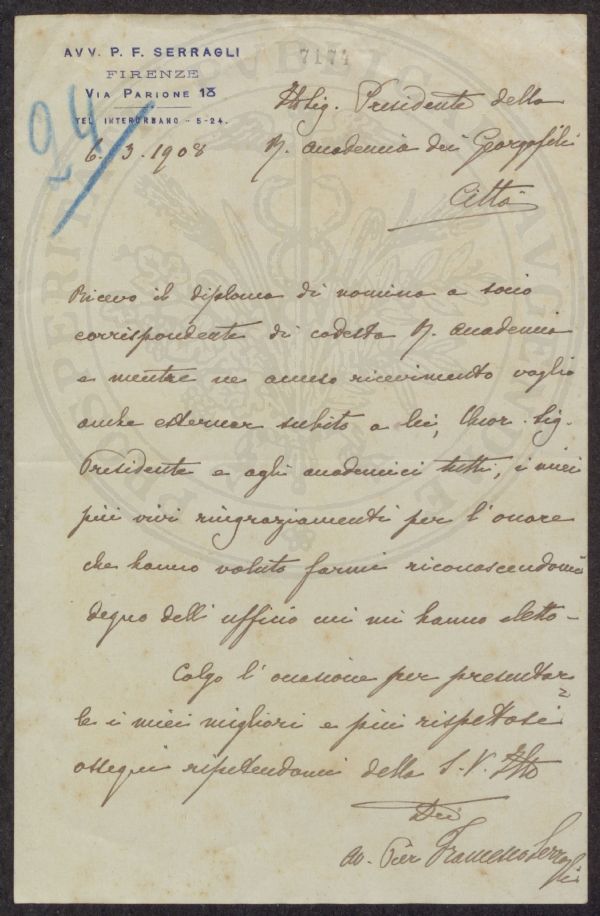 AVV. P. F. SERRAGLI
FIRENZE
VIA PARIONE 18
TEL. INTERURBANO - 5-24.
7174
94
6. 3. 1908
Ill Sig. Presidente della
R. Accademia dei Georgofili
Città
Ricevo il diploma di nomina a socio
corrispondente di codesta R. Accademia
e mentre ne accuso ricevimento voglio
anche esternar subito a lei, Onor. Sig.
Presidente e agli accademici tutti, i miei
più vivi ringraziamenti per l'onore
che hanno voluto farmi riconoscendomi
degno dell'ufficio cui mi hanno eletto -
Colgo l'occasione per presentar=
le i miei migliori e più rispettosi
ossequi ripetendomi della S. V. Illa
Dev
Av. Pier Francesco Serragli
PROSPERITATI PUBLICAE AUGENDAE